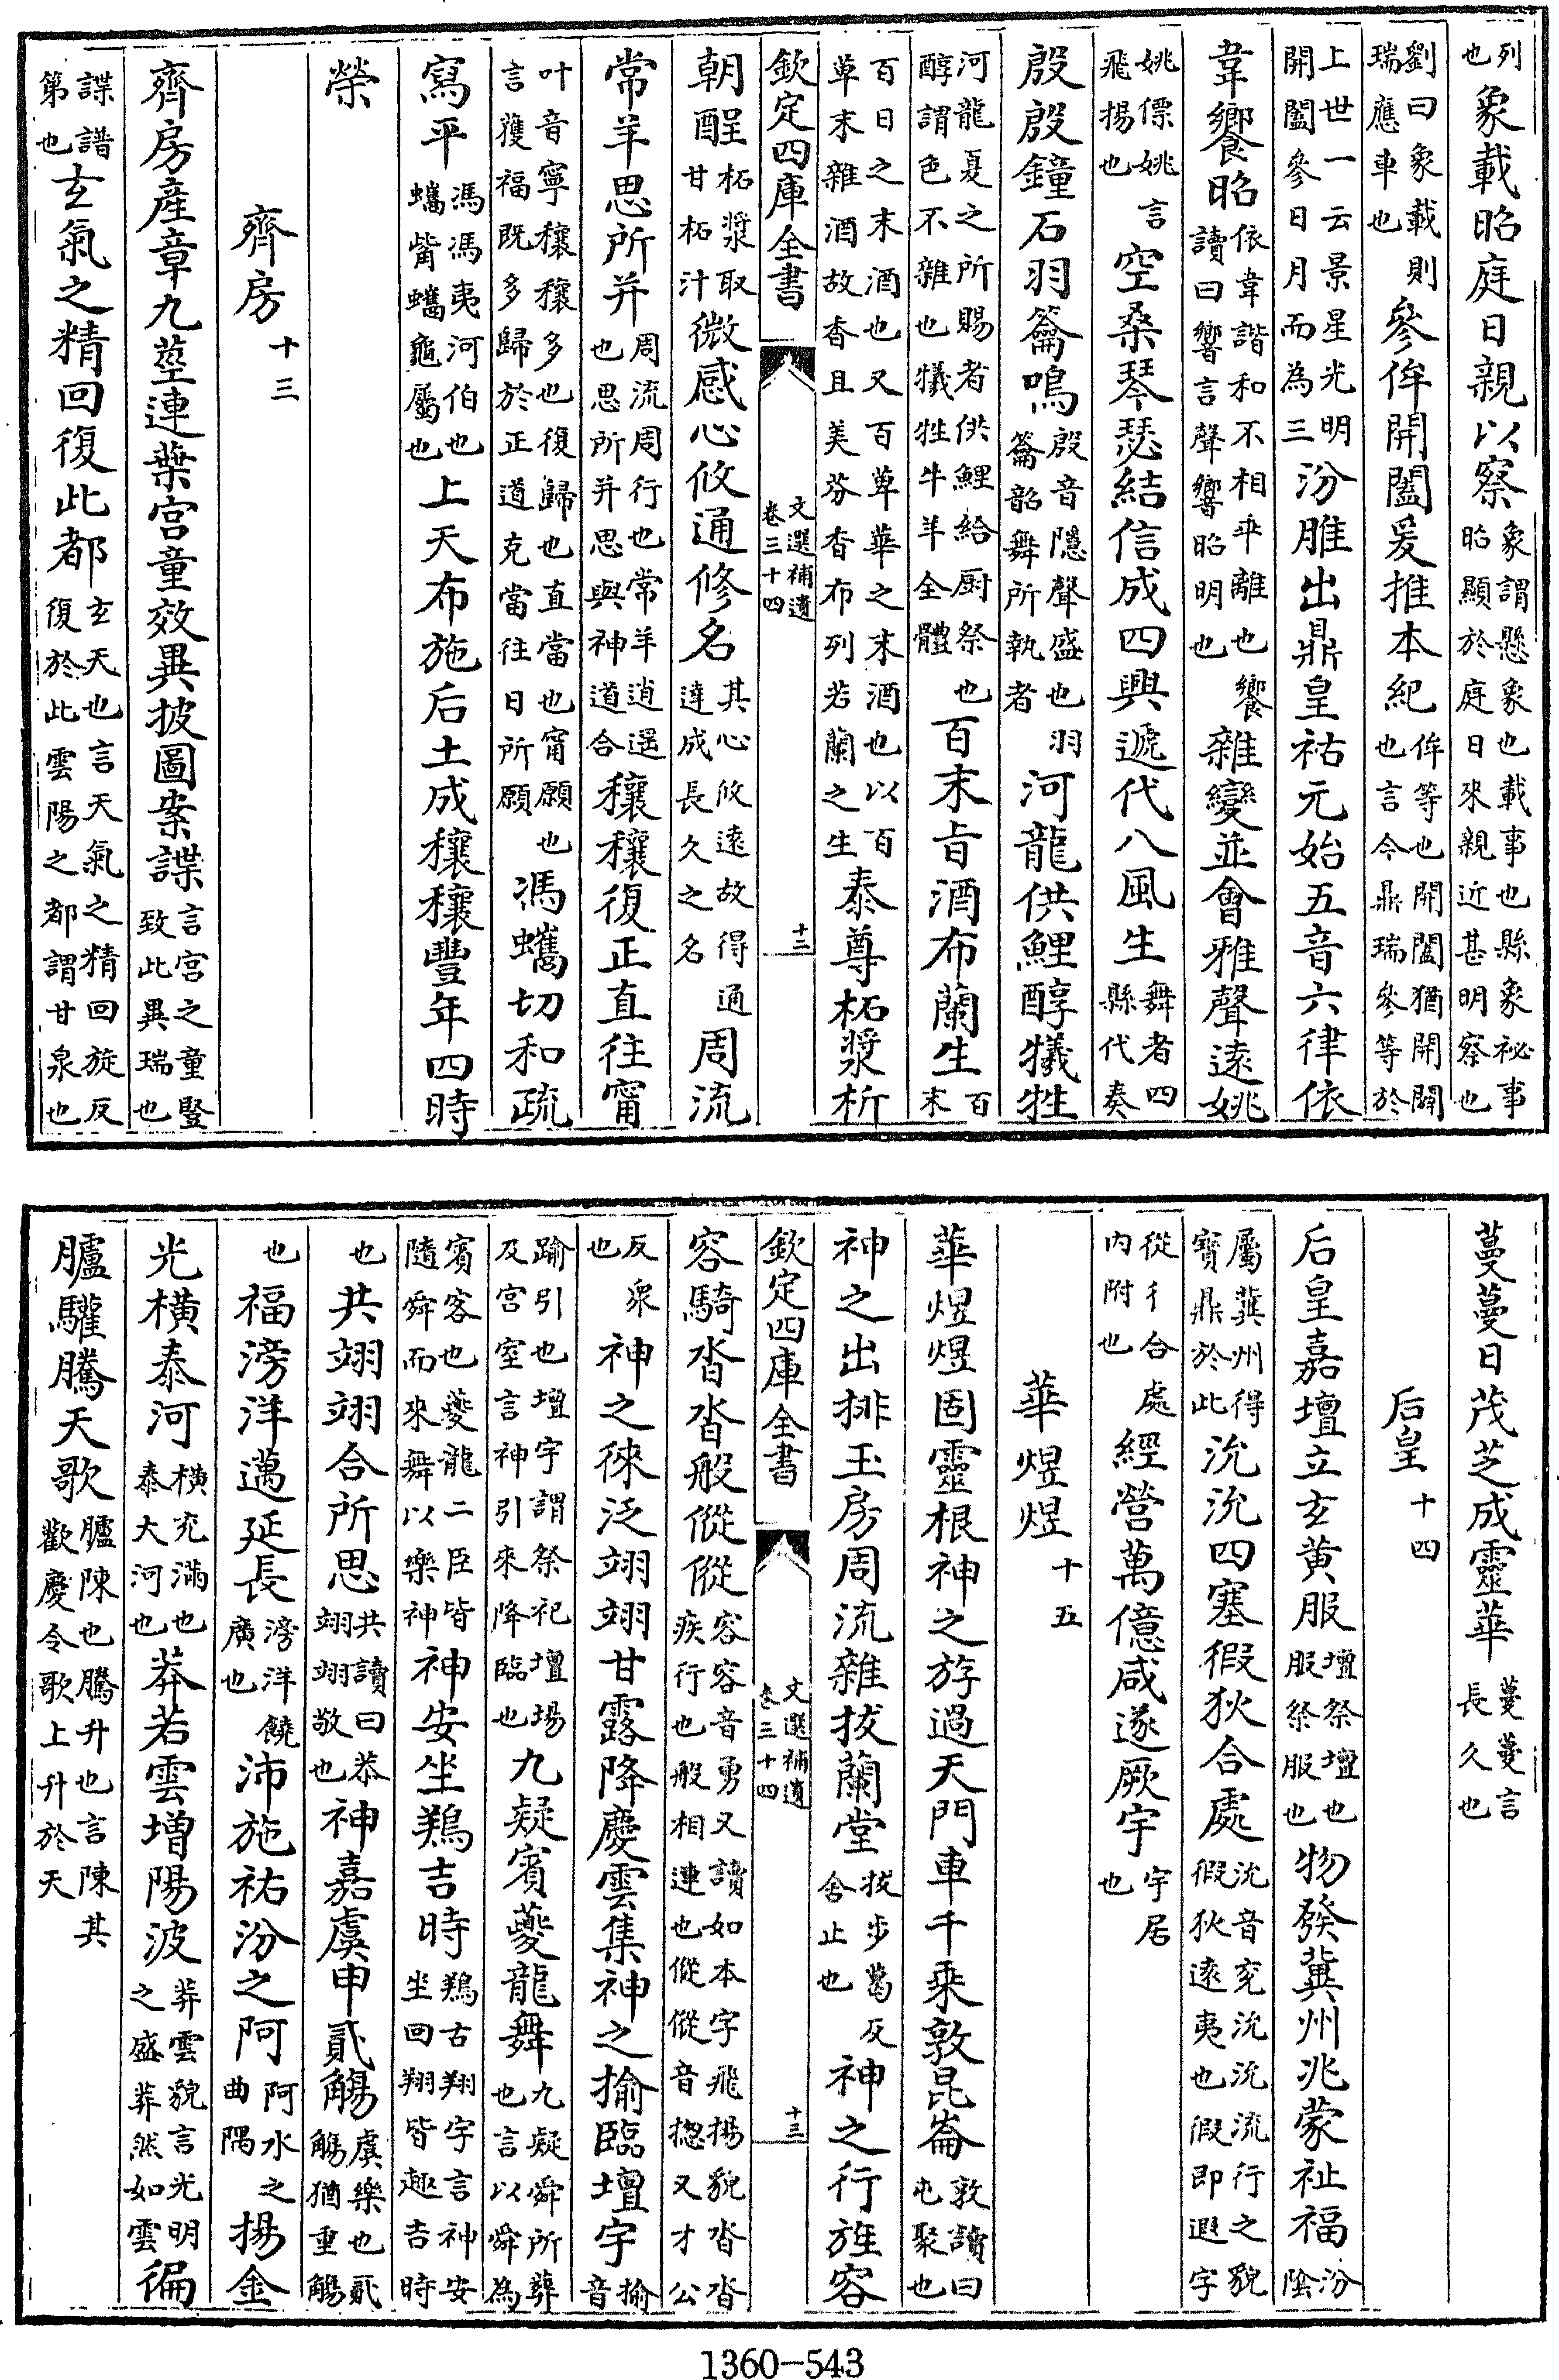 列也象載昭庭日親以察象謂懸象也載事也縣象祕事昭顯於庭日來親近甚明察也
劉曰象載則瑞應車也參侔開闔爰推本紀侔等也開闔猶開闢也言今鼎瑞參等於
上世一云景星光明開闔參日月而為三汾脽出鼎皇祐元始五音六律依
韋饗昭依韋諧和不相乖離也饗讀曰響言聲響昭明也雜變並會雅聲遠姚
姚僄姚言飛揚也空桑琴瑟結信成四興遞代八風生舞者四縣代奏
殷殷鐘石羽籥鳴殷音隱聲盛也羽籥韶舞所執者河龍供鯉醇犧牲
河龍夏之所賜者供鯉給厨祭也醇謂色不雜也犧牲牛羊全體百末旨酒布蘭生百末
百日之末酒也又百草華之末酒也以百草末雜酒故香且美芬香布列若蘭之生泰尊柘漿析
欽定四庫全書 文選補遺卷三十四 十三
朝酲柘漿取甘柘汁微感心攸通修名其心攸遠故得通達成長久之名周流
常羊思所并周流周行也常羊逍遥也思所并思與神道合穰穰復正直往甯
叶音寧穰穰多也復歸也直當也甯願也言獲福既多歸於正道克當往日所願馮蠵切和疏
寫平馮馮夷河伯也蠵觜蠵龜屬也上天布施后土成穰穰豐年四時
榮
齊房十三
齊房產章九莖連葉宫童效異披圖案諜言宫之童豎致此異瑞也
諜譜第也玄氣之精回復此都玄天也言天氣之精回旋反復於此雲陽之都謂甘泉也
蔓蔓日茂芝成靈華蔓蔓言長久也
后皇十四
后皇嘉壇立玄黄服壇祭壇也服祭服也物發冀州兆蒙祉福汾陰
屬冀州得寶鼎於此沇沇四塞假狄合處沇音兖沇沇流行之貌假狄遠夷也假即遐字
從彳合處内附也經營萬億咸遂厥宇宇居也
華煜煜十五
華煜煜固靈根神之斿過天門車千乘敦昆崙敦讀曰屯聚也
神之出排玉房周流雜拔蘭堂拔步葛反舍止也神之行旌容
欽定四庫全書 文選補遺卷三十四 十三
容騎沓沓般傱傱容容音勇又讀如本字飛揚貌沓沓疾行也般相連也傱傱音揔又才公
反衆也神之徠泛翊翊甘露降慶雲集神之揄臨壇宇揄音
踰引也壇宇謂祭祀壇場及宫室言神引來降臨也九疑賓夔龍舞九疑舜所葬也言以舜為
賓客也夔龍二臣皆隨舜而來舞以樂神神安坐鵷吉時鵷古翔字言神安坐回翔皆趣吉時
也共翊翊合所思共讀曰恭翊翊敬也神嘉虞申貳觴虞樂也貳觴猶重觴
也福滂洋邁延長滂洋饒廣也沛施祐汾之阿阿水之曲隅揚金
光橫泰河橫充滿也泰大河也莽若雲增陽波莽雲貌言光明之盛莽然如雲徧
臚驩騰天歌臚陳也騰升也言陳其歡慶令歌上升於天
1360-543